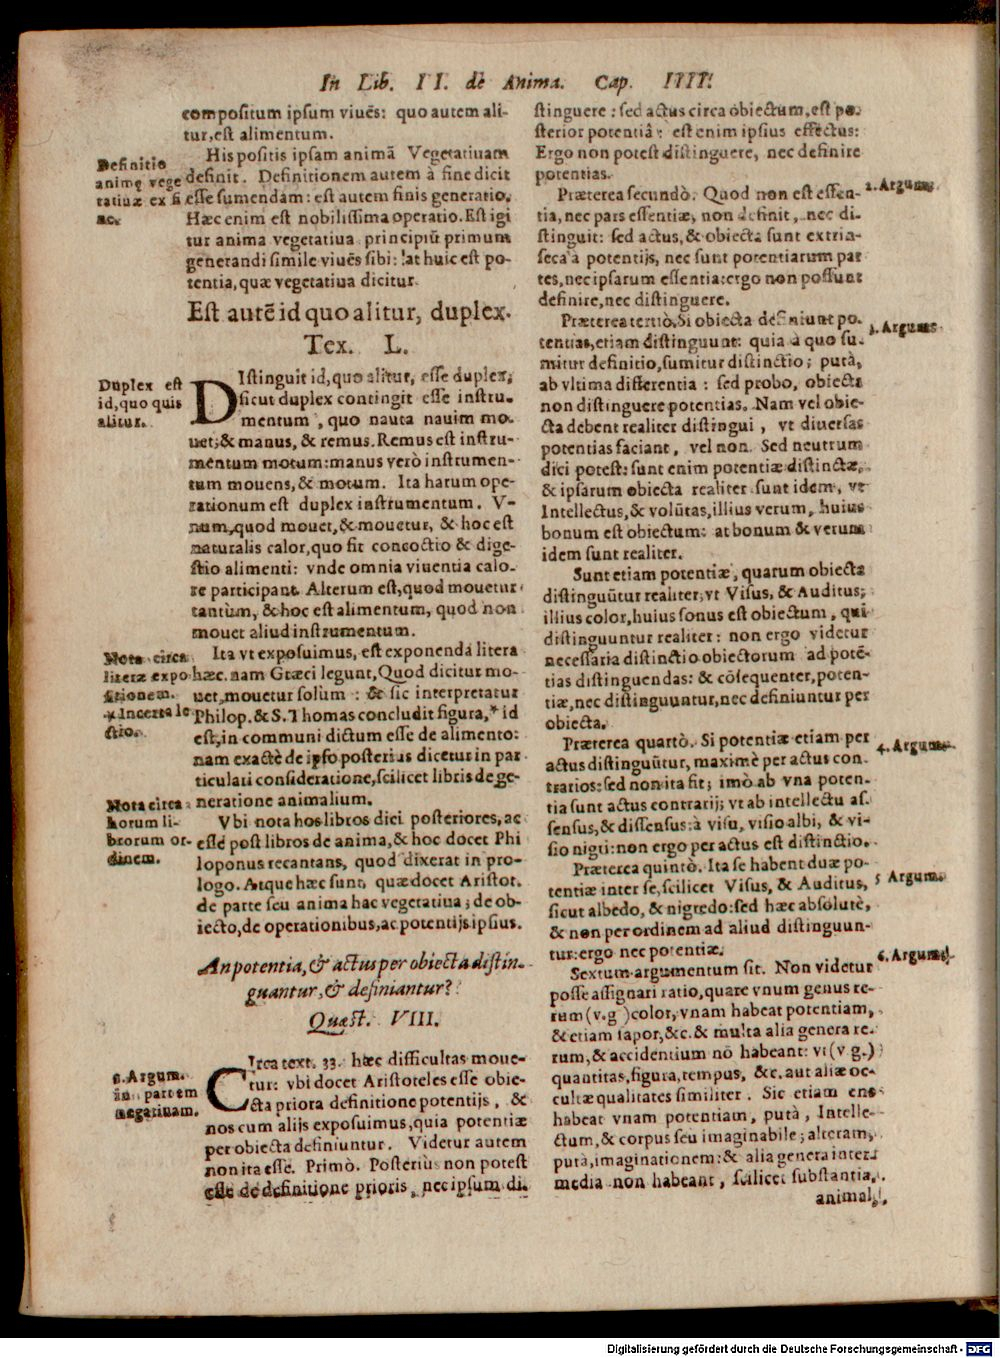 In Lib. II. de Anima. Cap. IIII.
compositum ipsum viuẽs: quo autem ali-
tur, est alimentum.
His positis ipsam animã Vegetatiuam
definit. Definitionem autem à fine dicit
esse sumendam: est autem finis generatio.
Hæc enim est nobilissima operatio. Est igi
tur anima vegetatiua principiũ primum
generandi simile viuẽs sibi: at huic est po-
tentia, quæ vegetatiua dicitur.
Definitio
animę vege
tatiuæ ex fi
ne.
Est autẽ id quo alitur, duplex.
Tex. L.
Duplex est
id, quo quis
alitur.
DIstinguit id, quo alitur, esse duplex,
sicut duplex contingit esse instru-
mentum, quo nauta nauim mo-
uet; & manus, & remus. Remus est instru-
mentum motum: manus verò instrumen-
tum mouens, & motum. Ita harum ope-
rationum est duplex instrumentum. V-
num, quod mouet, & mouetur, & hoc est
naturalis calor, quo fit concoctio & dige-
stio alimenti: vnde omnia viuentia calo-
re participant. Alterum est, quod mouetur
tantùm, & hoc est alimentum, quod non
mouet aliud instrumentum.
Ita vt exposuimus, est exponenda litera
hæc. nam Græci legunt, Quod dicitur mo-
uet, mouetur solum: & sic interpretatur
Philop. & S. Thomas concludit figura,* id
est, in communi dictum esse de alimento:
nam exactè de ipso posterius dicetur in par
ticulari consideratione, scilicet libris de ge-
neratione animalium.
Nota circa
literæ expo
sitionem.
* Incerta le
ctio.
Vbi nota hos libros dici posteriores, ac
esse post libros de anima, & hoc docet Phi
loponus recantans, quod dixerat in pro-
logo. Atque hæc sunt, quæ docet Aristot.
de parte seu anima hac vegetatiua; de ob-
iecto, de operationibus, ac potentijs ipsius.
Nota circa
horum li-
brorum or-
dinem.
An potentia, & actus per obiecta distin-
guantur, & definiantur?
Quæst. VIII.
1. Argum.
in partem
negatiuam.
CIrca text. 33. hæc difficultas moue-
tur: vbi docet Aristoteles esse obie-
cta priora definitione potentijs, &
nos cum alijs exposuimus, quia potentiæ
per obiecta definiuntur. Videtur autem
non ita esse. Primò. Posterius non potest
esse de definitione prioris, nec ipsum di-
stinguere: sed actus circa obiectum, est po-
sterior potentiâ: est enim ipsius effectus:
Ergo non potest distinguere, nec definire
potentias.
Præterea secundò. Quod non est essen-
tia, nec pars essentiæ, non definit, nec di-
stinguit: sed actus, & obiecta sunt extrin-
seca à potentijs, nec sunt potentiarum par
tes, nec ipsarum essentia: ergo non possunt
definire, nec distinguere.
2. Argum.
Præterea tertiò. Si obiecta definiunt po-
tentias, etiam distinguunt: quia à quo su-
mitur definitio, sumitur distinctio; putà,
ab vltima differentia: sed probo, obiecta
non distinguere potentias. Nam vel obie-
cta debent realiter distingui, vt diuersas
potentias faciant, vel non. Sed neutrum
dici potest: sunt enim potentiæ distinctæ,
& ipsarum obiecta realiter sunt idem, vt
Intellectus, & volũtas, illius verum, huius
bonum est obiectum: at bonum & verum
idem sunt realiter.
3. Argum.
Sunt etiam potentiæ, quarum obiecta
distinguũtur realiter, vt Visus, & Auditus;
illius color, huius sonus est obiectum, qui
distinguuntur realiter: non ergo videtur
necessaria distinctio obiectorum ad potẽ-
tias distinguendas: & cõsequenter, poten-
tiæ, nec distinguuntur, nec definiuntur per
obiecta.
Præterea quartò. Si potentiæ etiam per
actus distinguũtur, maximè per actus con-
trarios: sed non ita fit; imò ab vna poten-
tia sunt actus contrarij; vt ab intellectu as-
sensus, & dissensus: à visu, visio albi, & vi-
sio nigri: non ergo per actus est distinctio.
4. Argum.
Præterea quintò. Ita se habent duæ po-
tentiæ inter se, scilicet Visus, & Auditus,
sicut albedo, & nigredo: sed hæc absolutè,
& non per ordinem ad aliud distinguun-
tur: ergo nec potentiæ.
5 Argum.
Sextum argumentum sit. Non videtur
posse assignari ratio, quare vnum genus re-
rum (v.g) color, vnam habeat potentiam,
& etiam sapor, &c. & multa alia genera re-
rum, & accidentium nõ habeant: vt (v.g.)
quantitas, figura, tempus, &c. aut aliæ oc-
cultæ qualitates similiter. Sic etiam ens
habeat vnam potentiam, putà, Intelle-
ctum, & corpus seu imaginabile; alteram,
putà, imaginationem: & alia genera inter-
media non habeant, scilicet substantia,
animal,
6. Argum.
Digitalisierung gefördert durch die Deutsche Forschungsgemeinschaft - DFG